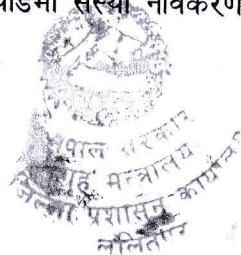 संस्था नविकरण
नेपाल सरकार
गृह मन्त्रालय
जिल्ला प्रशासन कार्यालय
ललितपुर